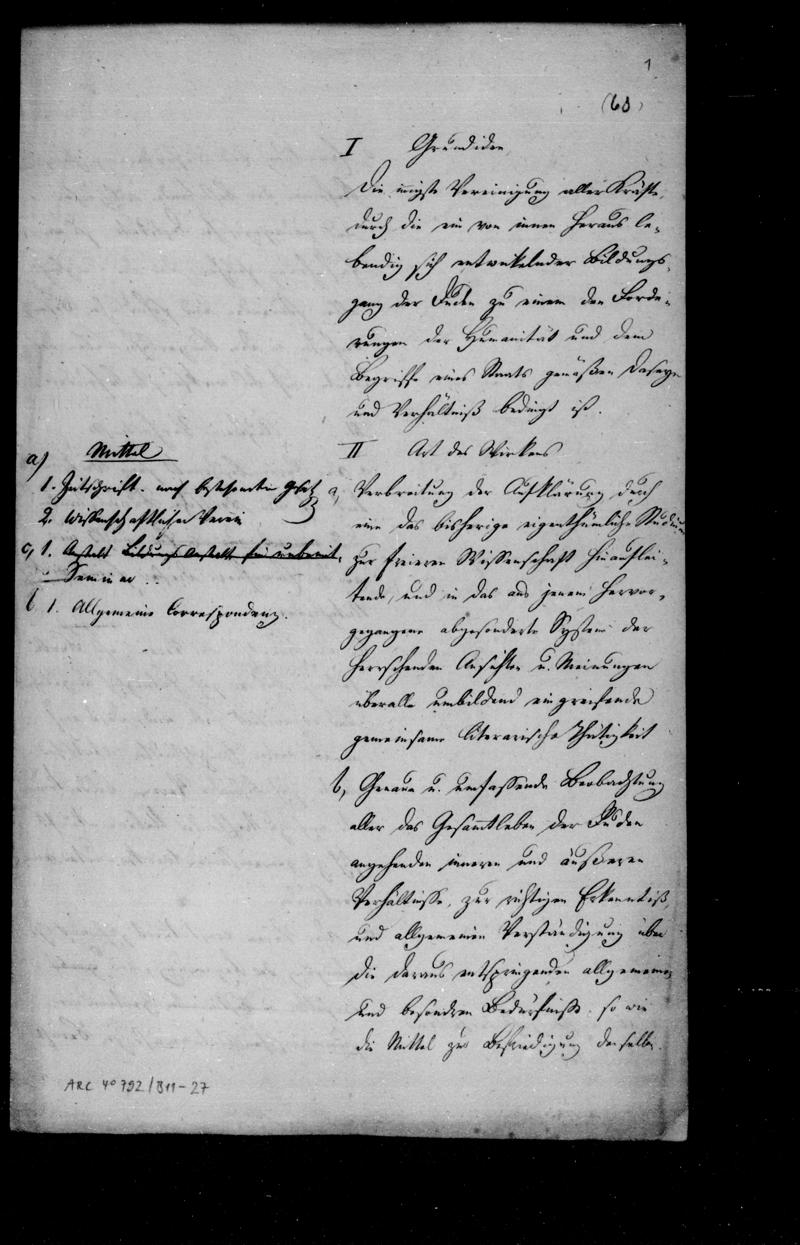 1
(60)
I Grundidee
Die innigste Vereinigung aller Kräfte,
durch die ein von innen heraus le-
bendig sich entwikelnder Bildungs-
gang der Juden zu einem den Forde-
rungen der Humanität und dem
Begriffe eines Staats gemäßen Daseyn
und Verhältniß bedingt ist.
II Art des Wirkens
a, Verbreitung der Aufklärung durch
eine das bisherige eigenthümliche Studium
zur freieren Wissenschaft hinauflei-
tende, und in das aus jenem hervor-
gegangene abgesonderte System der
herrschenden Ansichten u. Meinungen
überall umbildend eingreifende
gemeinsame literarische Thätigkeit
b, Genaue u. umfassende Beobachtung
aller das Gesamtleben der Juden
angehenden inneren und äußeren
Verhältnisse, zur richtigen Erkenntniß,
und allgemeinen Verständigung über
die daraus entspringenden allgemeinen
und besondren Bedürfnisse, so wie
die Mittel zur Befriedigung derselben.
a) Mittel
1. Zeitschrift. nach
2. Wissenschaftlicher Verein
c, 1. Anstalt Bildungs Anstalt für
Seminar
b 1. Allgemeine Correspondenz.
ARC 4° 792/B11-27